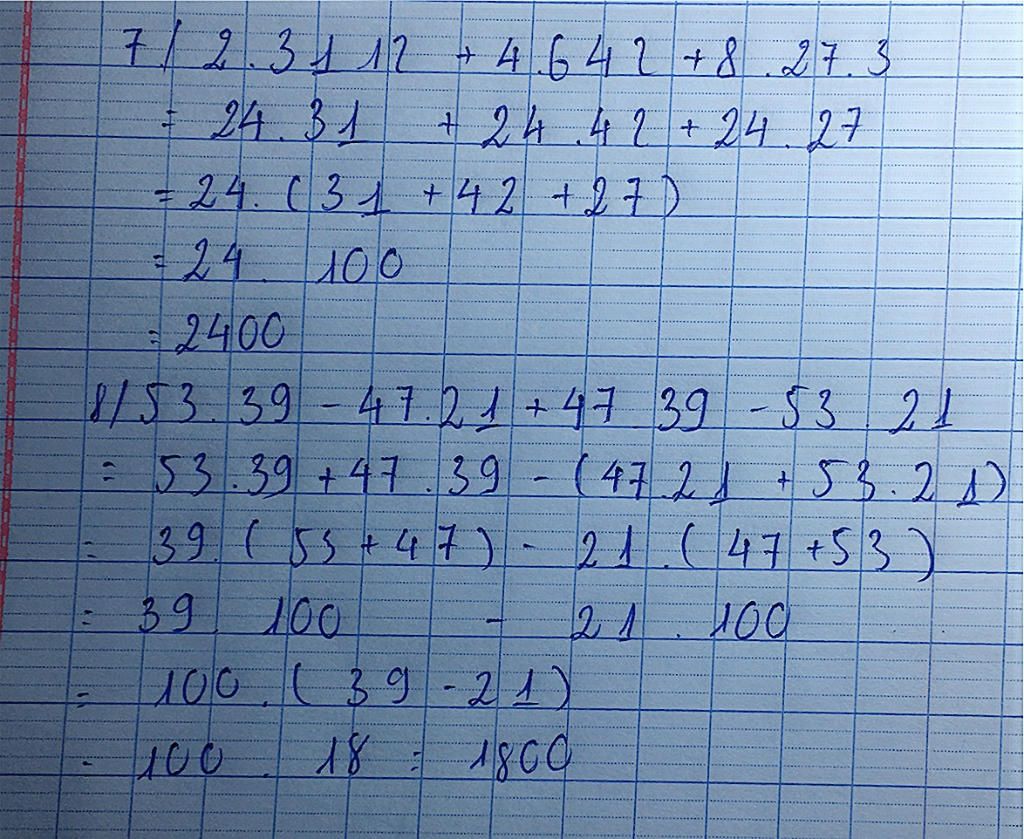 7/ 2.31 12 + 4.6 42 + 8.27.3
= 24.31 + 24.42 + 24.27
= 24.(31 + 42 + 27)
= 24. 100
= 2400
8/ 53.39 - 47.21 + 47 39 - 53.21
= 53.39 + 47.39 - (47.21 + 53.21)
= 39.(53 + 47) - 21.(47 + 53)
= 39. 100 - 21.100
= 100.(39 - 21)
= 100. 18 = 1800